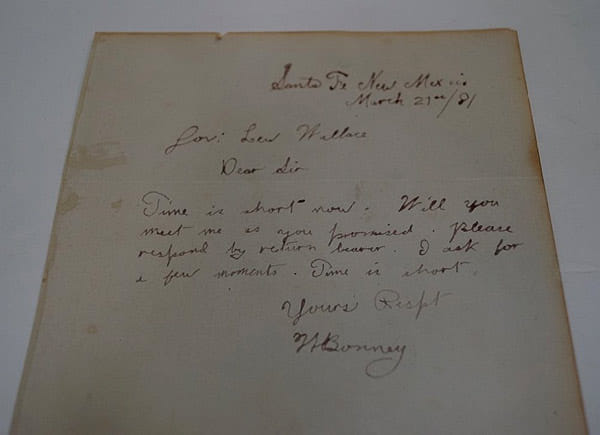 Santa Fe New Mexico
March 21st/81
Gov: Lew Wallace
Dear Sir
Time is short now. Will you
meet me as you promised. Please
respond by return bearer. I ask for
a few moments. Time is short.
Yours Respt
WBonney